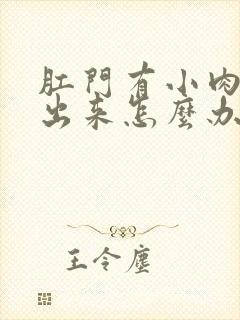 肛門有小肉
出来怎麼办
王令塵